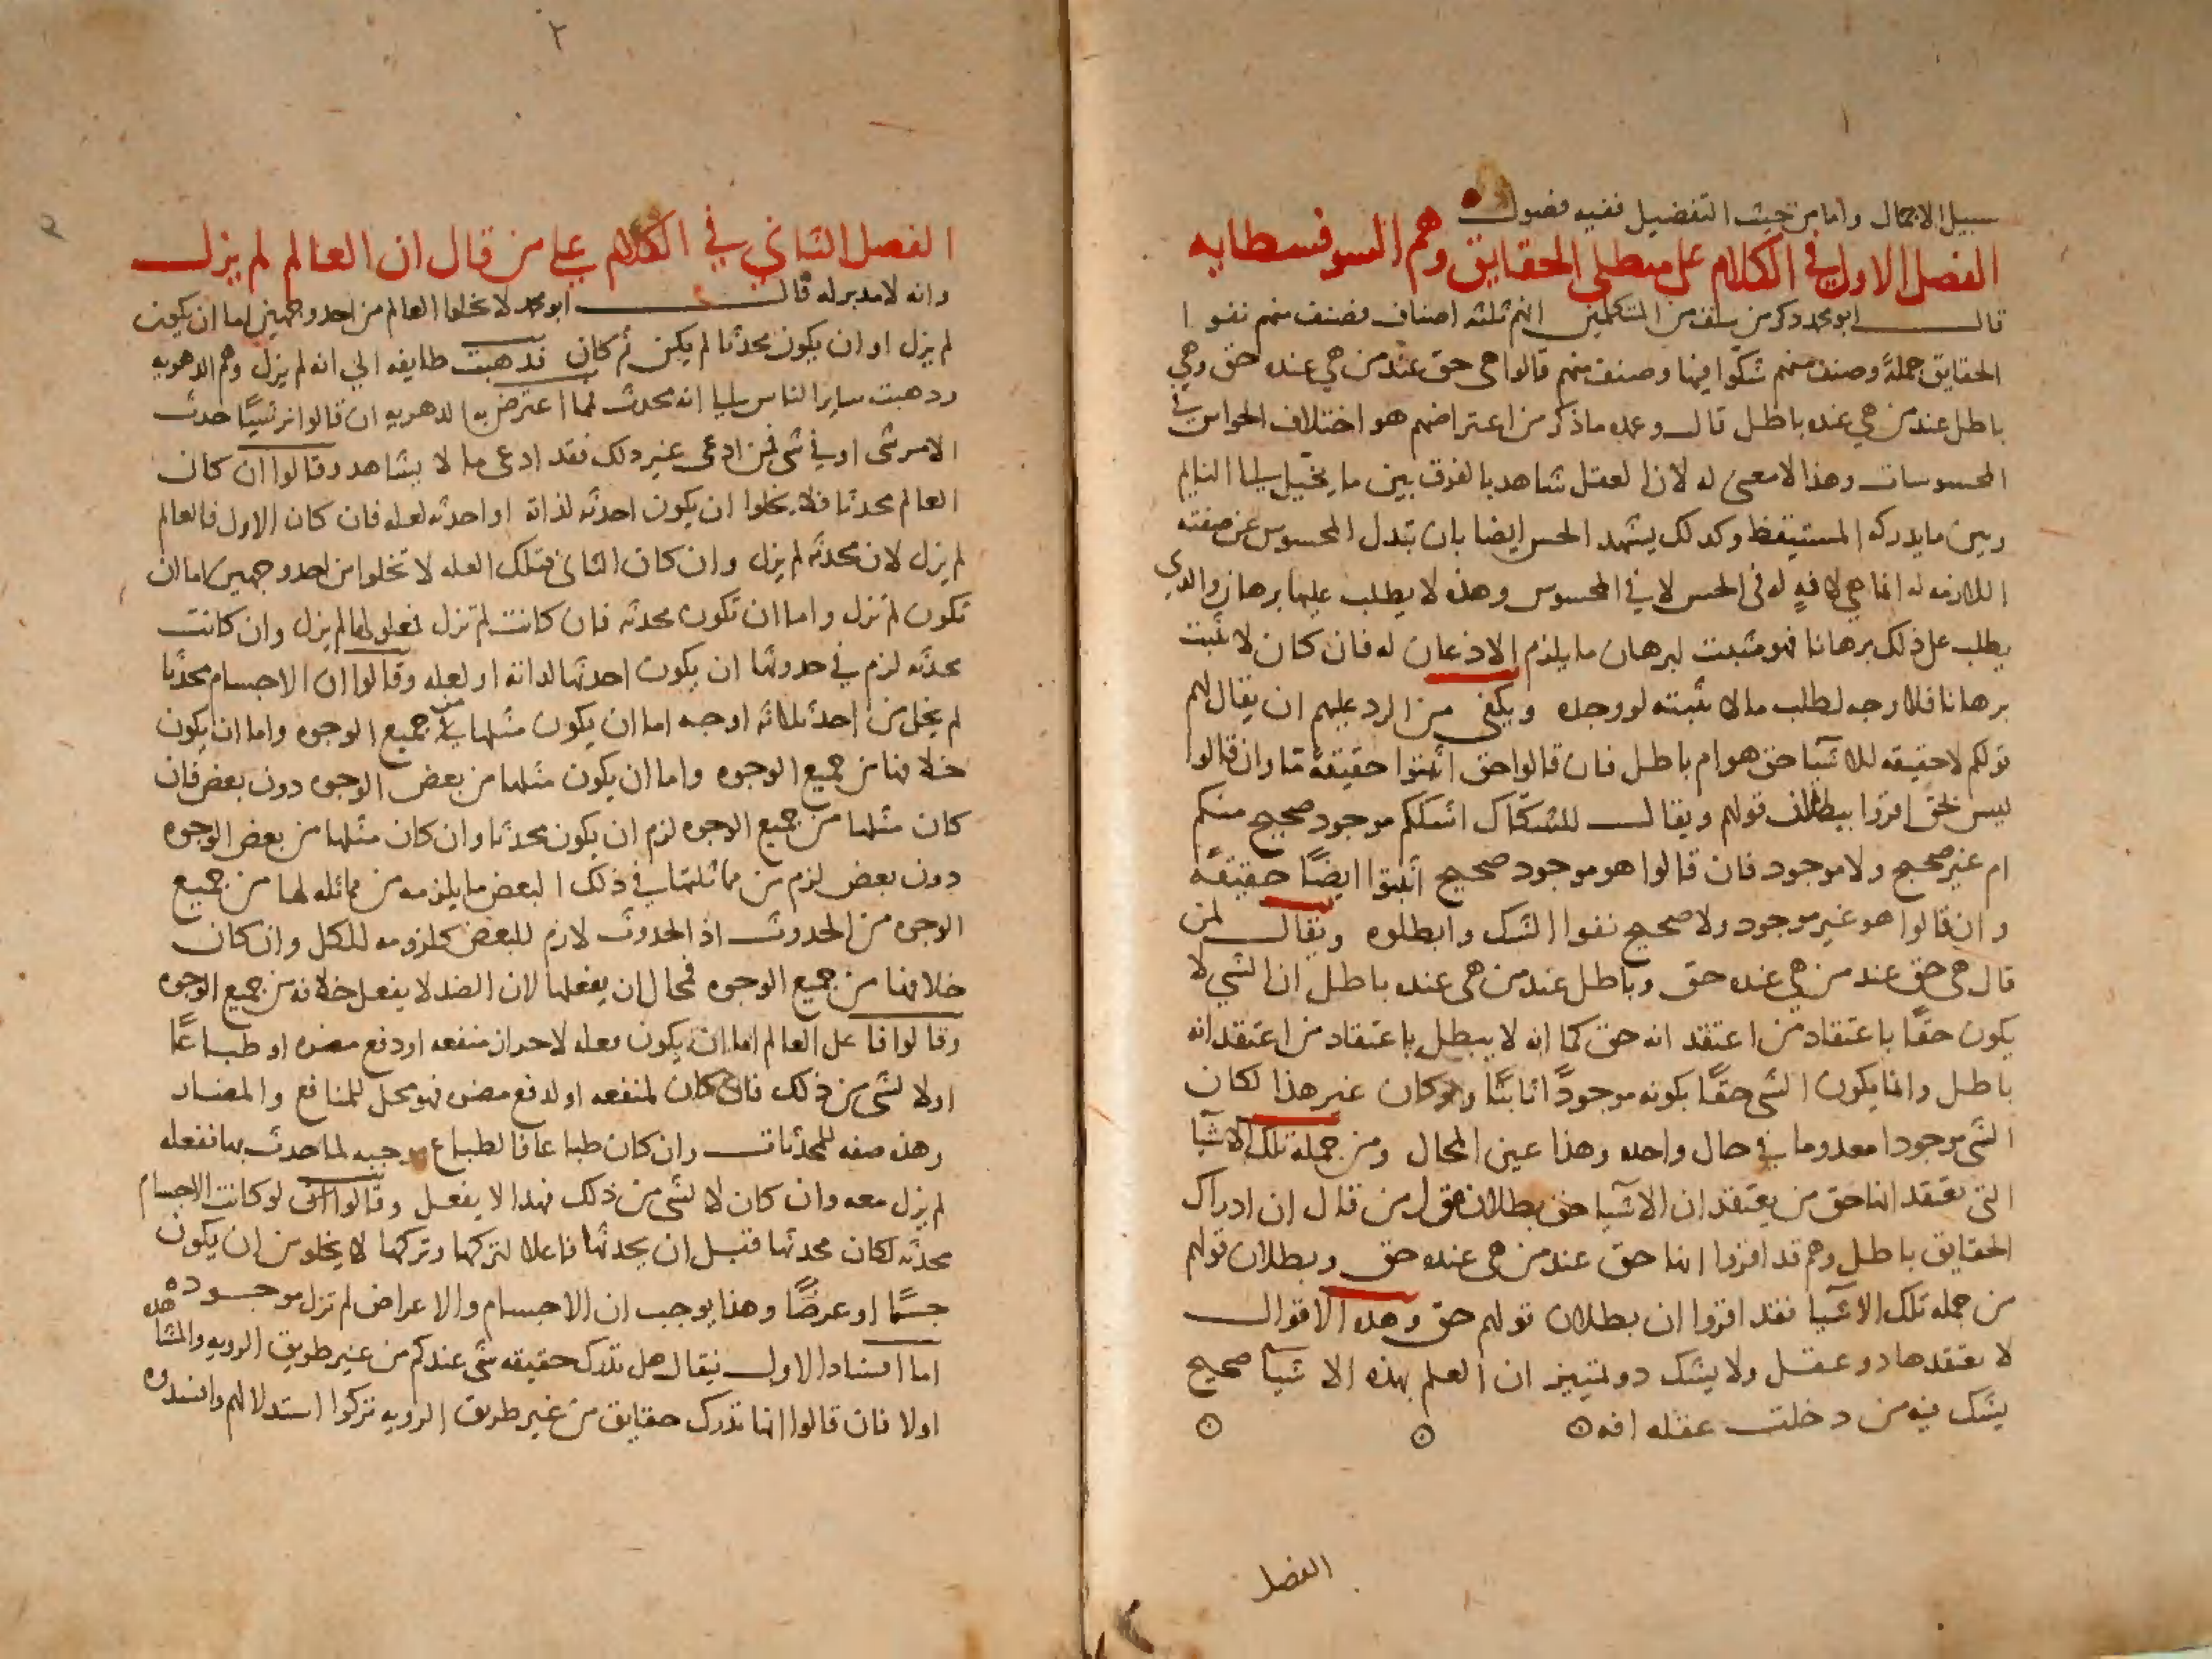 ١
سبيل الاجمال واما من حيث التفضيل ففيه فصول
الفصل الاول في الكلام على مبطلي الحقايق وهم السوفسطايه
قال ابو محمد ذكر من سلف من المتكلمين انهم ثلثه اصناف فصنف منهم نفوا
الحقايق جملةً وصنف منهم شكوا فيها وصنف منهم قالوا هي حق عند من هي عنده حق وهي
باطل عند من هي عنده باطل قال وعمده ما ذكر من اعتراضهم هو اختلاف الحواس في
المحسوسات وهذا لا معنى له لان العقل شاهد بالفرق بين ما يخيل الى النايم
وبين ما يدركه المستيقظ وكدلك يشهد الحس ايضا بان تبدل المحسوس عن صفته
اللازمه له انما هي لافهٍ له فى الحس لا في المحسوس وهذه لا يطلب عليها برهان والدي
يطلب على ذلك برهانا فهو مثبت لبرهان ما يلزم الاذعان له فان كان لا يثبت
برهانا فلا وجه لطلب مالا يثبته لو وجده ويكفى من الرد عليهم ان يقال لهم
قولكم لا حقيقه للاشيآ حق هو ام باطل فان قالوا حق اثبتوا حقيقةً ما وان قالوا
ليس بحق اقروا ببطلان قولهم ويقال للشكاك اشككم موجود صحيح منكم
ام غير صحيح ولا موجود فان قالوا هو موجود صحيح اثبتوا ايضًا حقيقةً
وان قالوا هو غير موجود ولا صحيح نفوا الشك وابطلوه ويقال لمن
قال هي حق عند من هي عنده حق وباطل عند من هى عنده باطل ان الشي لا
يكون حقًا باعتقاد من اعتقد انه حق كما انه لا يبطل باعتقاد من اعتقد انه
باطل وانما يكون الشى حقًا بكونه موجودًا ثابتًا ولو كان غير هذا لكان
الشى موجودا معدوما في حال واحده وهذا عين المحال ومن جملة تلك الاشيآ
التى تعتقد انها حق من يعتقد ان الاشيآ حق بطلان قول من قال ان ادراك
الحقايق باطل وهم قد اقروا انها حق عند من هى عنده حق وبطلان قولهم
من جمله تلك الاشيا فقد اقروا ان بطلان قولهم حق وهذه الاقوال
لا يعتقدها دو عقل ولا يشك دو تمييز ان العلم بهذه الاشيآ صحيح
يشك فيه من دخلت عقله افه
الفصل
٢
٢
الفصل الثاني في الكلام على من قال ان العالم لم يزل
وانه لا مدبر له قال ابو محمد لا يخلوا العالم من احد وجهين اما ان يكون
لم يزل او ان يكون محدثا لم يكن ثم كان فدهبت طايفه الي انه لم يزل وهم الدهريه
ودهبت ساير الناس الى انه محدث فما اعترض به الدهريه ان قالوا لم نر شيًا حدث
الا من شى او في شى فمن ادعى غير دلك فقد ادعى ما لا يشاهد وقالوا ان كان
العالم محدثا فلا يخلوا ان يكون احدثه لذاته او احدثه لعله فان كان الاول فالعالم
لم يزل لان محدثه لم يزل وان كان الثانى فتلك العله لا تخلوا من احد وجهين اما ان
تكون لم تزل واما ان تكون محدثه فان كانت لم تزل فمعلولها لم يزل وان كانت
محدثه لزم في حدوثها ان يكون احدثها لداته او لعله وقالوا ان الاجسام محدثا
لم يخل من احد ثلاثه اوجه اما ان يكون مثلها من جميع الوجوه واما ان يكون
خلافها من جميع الوجوه واما ان يكون مثلها من بعض الوجوه دون بعض فان
كان مثلها من جميع الوجوه لزم ان يكون محدثا وان كان مثلها من بعض الوجوه
دون بعض لزم من مماثلتها في ذلك البعض ما يلزمه من مماثله لها من جميع
الوجوه من الحدوث اذ الحدوث لازم للبعض كلزومه للكل وان كان
خلافها من جميع الوجوه فمحال ان يفعلها لان الضد لا يفعل خلافه من جميع الوجوه
وقالوا فاعل العالم اما ان يكون فعله لاحراز منفعه او دفع مضره او طباعًا
اولا لشى من ذلك فان كان لمنفعه او لدفع مضره فهو محل للمنافع والمضار
وهذه صفه للمحدثات وان كان طباعا فالطباع موجبه لما حدث بها ففعله
لم يزل معه وان كان لا لشى من ذلك فهدا لا يفعل وقالوا لو كانت الاجسام
محدثه لكان محدثها قبل ان يحدثها فاعلا لتركها وتركها لا يخلو من ان يكون
جسمًا او عرضًا وهذا يوجب ان الاجسام والاعراض لم تزل موجوده
اما افساد الاول فيقال هل تدرك حقيقه شى عندكم من غير طريق الرويه والمشاهده
اولا فان قالوا انها تدرك حقايق من غير طريق الرويه تركوا استدلالهم وافسدوه